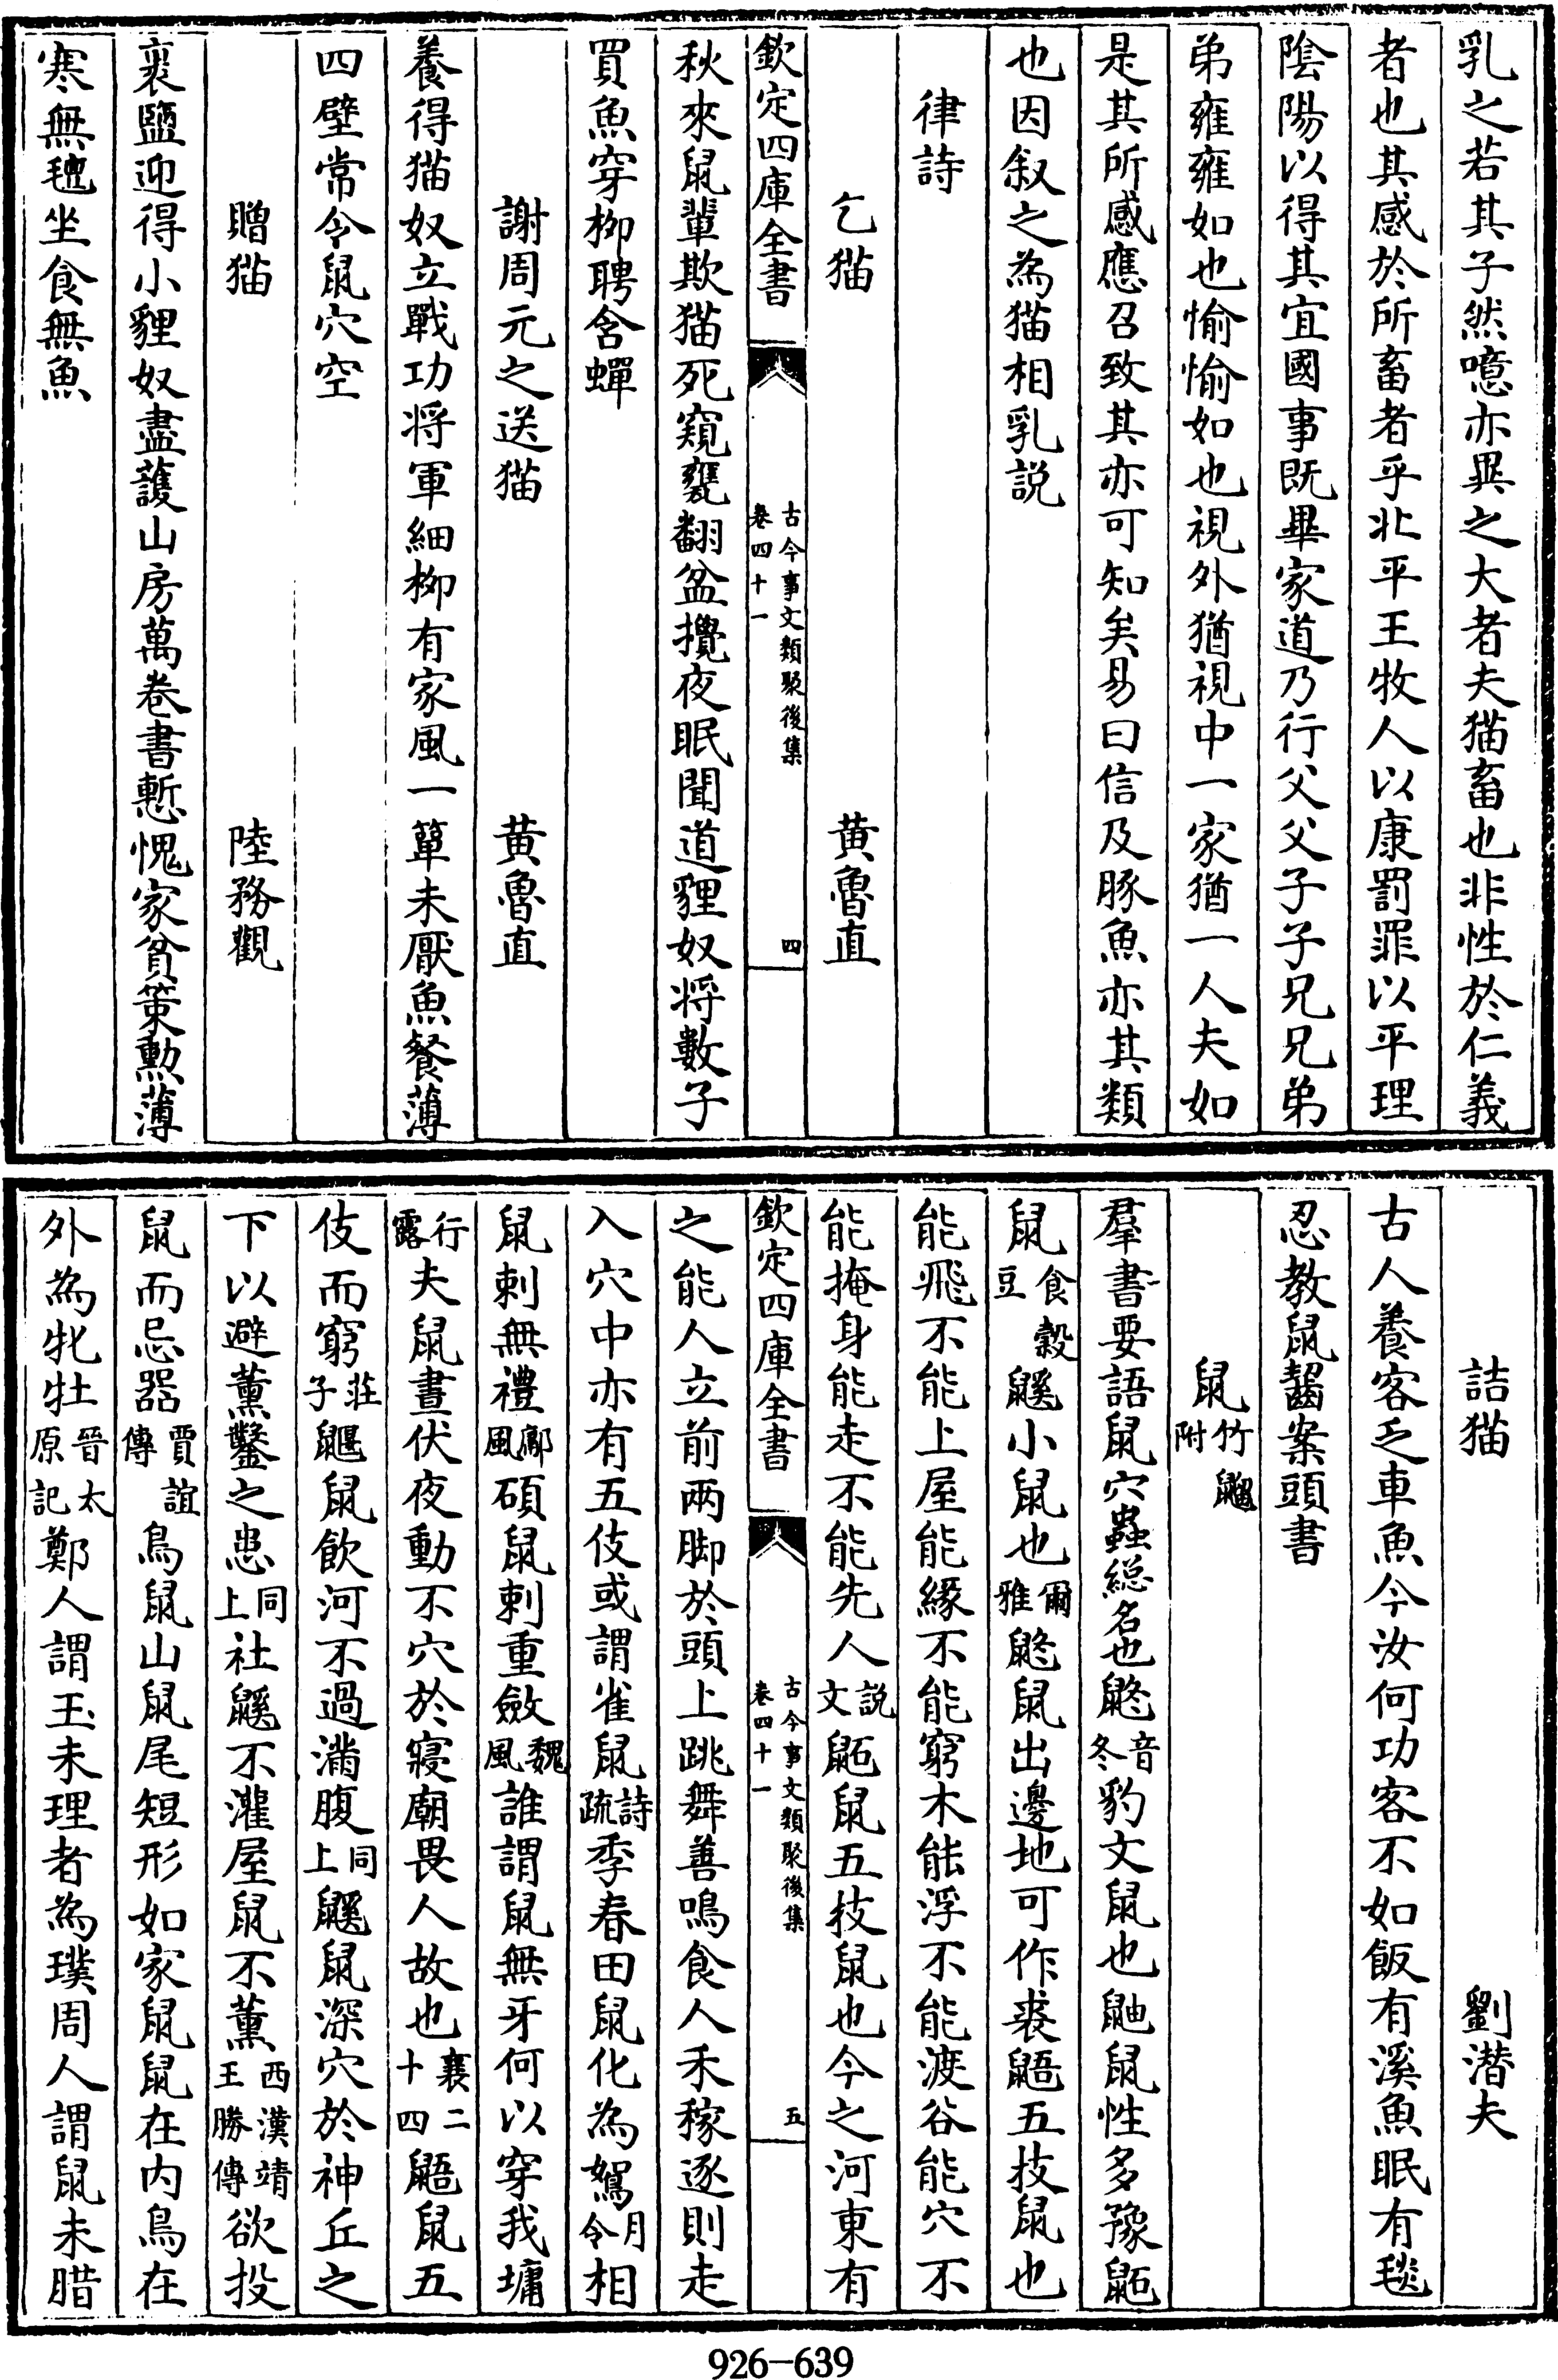 乳之若其子然噫亦異之大者夫猫畜也非性於仁義
者也其感於所畜者乎北平王牧人以康罰罪以平理
陰陽以得其宜國事既畢家道乃行父父子子兄兄弟
弟雍雍如也愉愉如也視外猶視中一家猶一人夫如
是其所感應召致其亦可知矣易曰信及豚魚亦其類
也因叙之為猫相乳説
律詩
乞猫 黄魯直
欽定四庫全書 古今事文類聚後集 卷四十一 四
秋來鼠輩欺猫死窺甕翻盆攪夜眠聞道貍奴将數子
買魚穿柳聘含蟬
謝周元之送猫 黄魯直
養得猫奴立戰功将軍細柳有家風一簞未厭魚餐薄
四壁常令鼠穴空
贈猫 陸務觀
裹鹽迎得小貍奴盡護山房萬卷書慙愧家貧策勲薄
寒無氊坐食無魚
詰猫 劉潛夫
古人養客乏車魚今汝何功客不如飯有溪魚眠有毯
忍教鼠齧案頭書
鼠 竹䶉附
羣書要語鼠穴蟲總名也鼨音冬豹文鼠也鼬鼠性多豫鼫
鼠食穀豆鼷小鼠也爾雅鼨鼠出邊地可作裘鼯五技鼠也
能飛不能上屋能緣不能窮木能浮不能渡谷能穴不
能掩身能走不能先人説文鼫鼠五技鼠也今之河東有
欽定四庫全書 古今事文類聚後集 卷四十一 五
之能人立前兩脚於頭上跳舞善鳴食人禾稼逐則走
入穴中亦有五伎或謂雀鼠詩疏季春田鼠化為鴽月令相
鼠刺無禮鄘風碩鼠刺重斂魏風誰謂鼠無牙何以穿我墉
行露夫鼠晝伏夜動不穴於寢廟畏人故也襄二十四鼯鼠五
伎而窮莊子鼴鼠飲河不過滿腹同上鼷鼠深穴於神丘之
下以避薰鑿之患同上社鼷不灌屋鼠不薰西漢靖王勝傳欲投
鼠而忌器賈誼傳鳥鼠山鼠尾短形如家鼠鼠在内鳥在
外為牝牡晉太原記鄭人謂玉未理者為璞周人謂鼠未腊
926-639